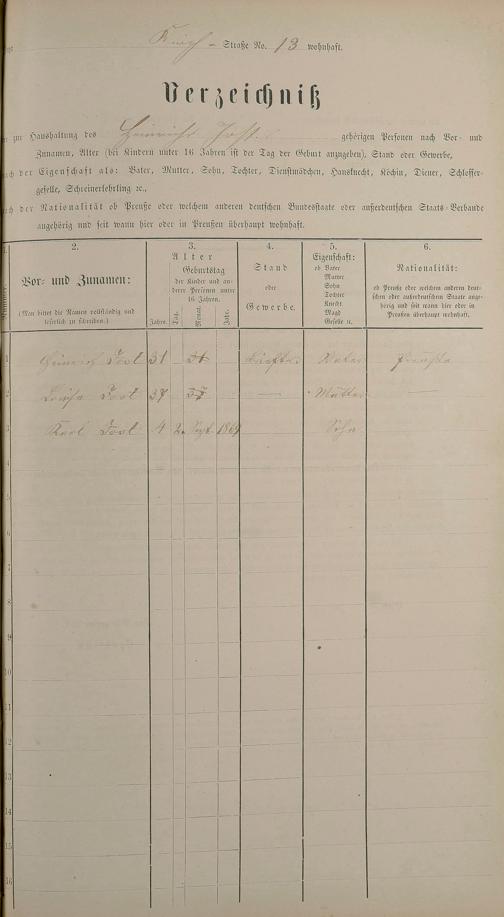 Straße No. 13 wohnhaft.
Verzeichniß
zur Haushaltung des Heinrich gehörigen Personen nach Vor- und
Zunamen, Alter (bei Kindern unter 16 Jahren ist der Tag der Geburt anzugeben), Stand oder Gewerbe,
nach der Eigenschaft als: Vater, Mutter, Sohn, Tochter, Dienstmädchen, Hausknecht, Köchin, Diener, Schlosser-
geselle, Schreinerlehrling ꝛc.,
nach der Nationalität ob Preuße oder welchem anderen deutschen Bundesstaate oder außerdeutschen Staats-Verbande
angehörig und seit wann hier oder in Preußen überhaupt wohnhaft.
1. 2. 3. 4. 5. 6.
Nummer.
Vor- und Zunamen:
(Man bittet die Namen vollständig und
leserlich zu schreiben.)
Alter
Geburtstag
der Kinder und an-
derer Personen unter
16 Jahren.
Jahre. Tag. Monat. Jahr.
Stand
oder
Gewerbe.
Eigenschaft:
ob Vater
Mutter
Sohn
Tochter
Knecht
Magd
Geselle ꝛc.
Nationalität:
ob Preuße oder welchem andern deut-
schen oder außerdeutschen Staate ange-
hörig und seit wann hier oder in
Preußen überhaupt wohnhaft.
1 Heinrich 31 31 Vater
2 37 37 — Mutter —
3 Karl 4 2. Sept. 1869 Sohn
4
5
6
7
8
9
10
11
12
13
14
15
16